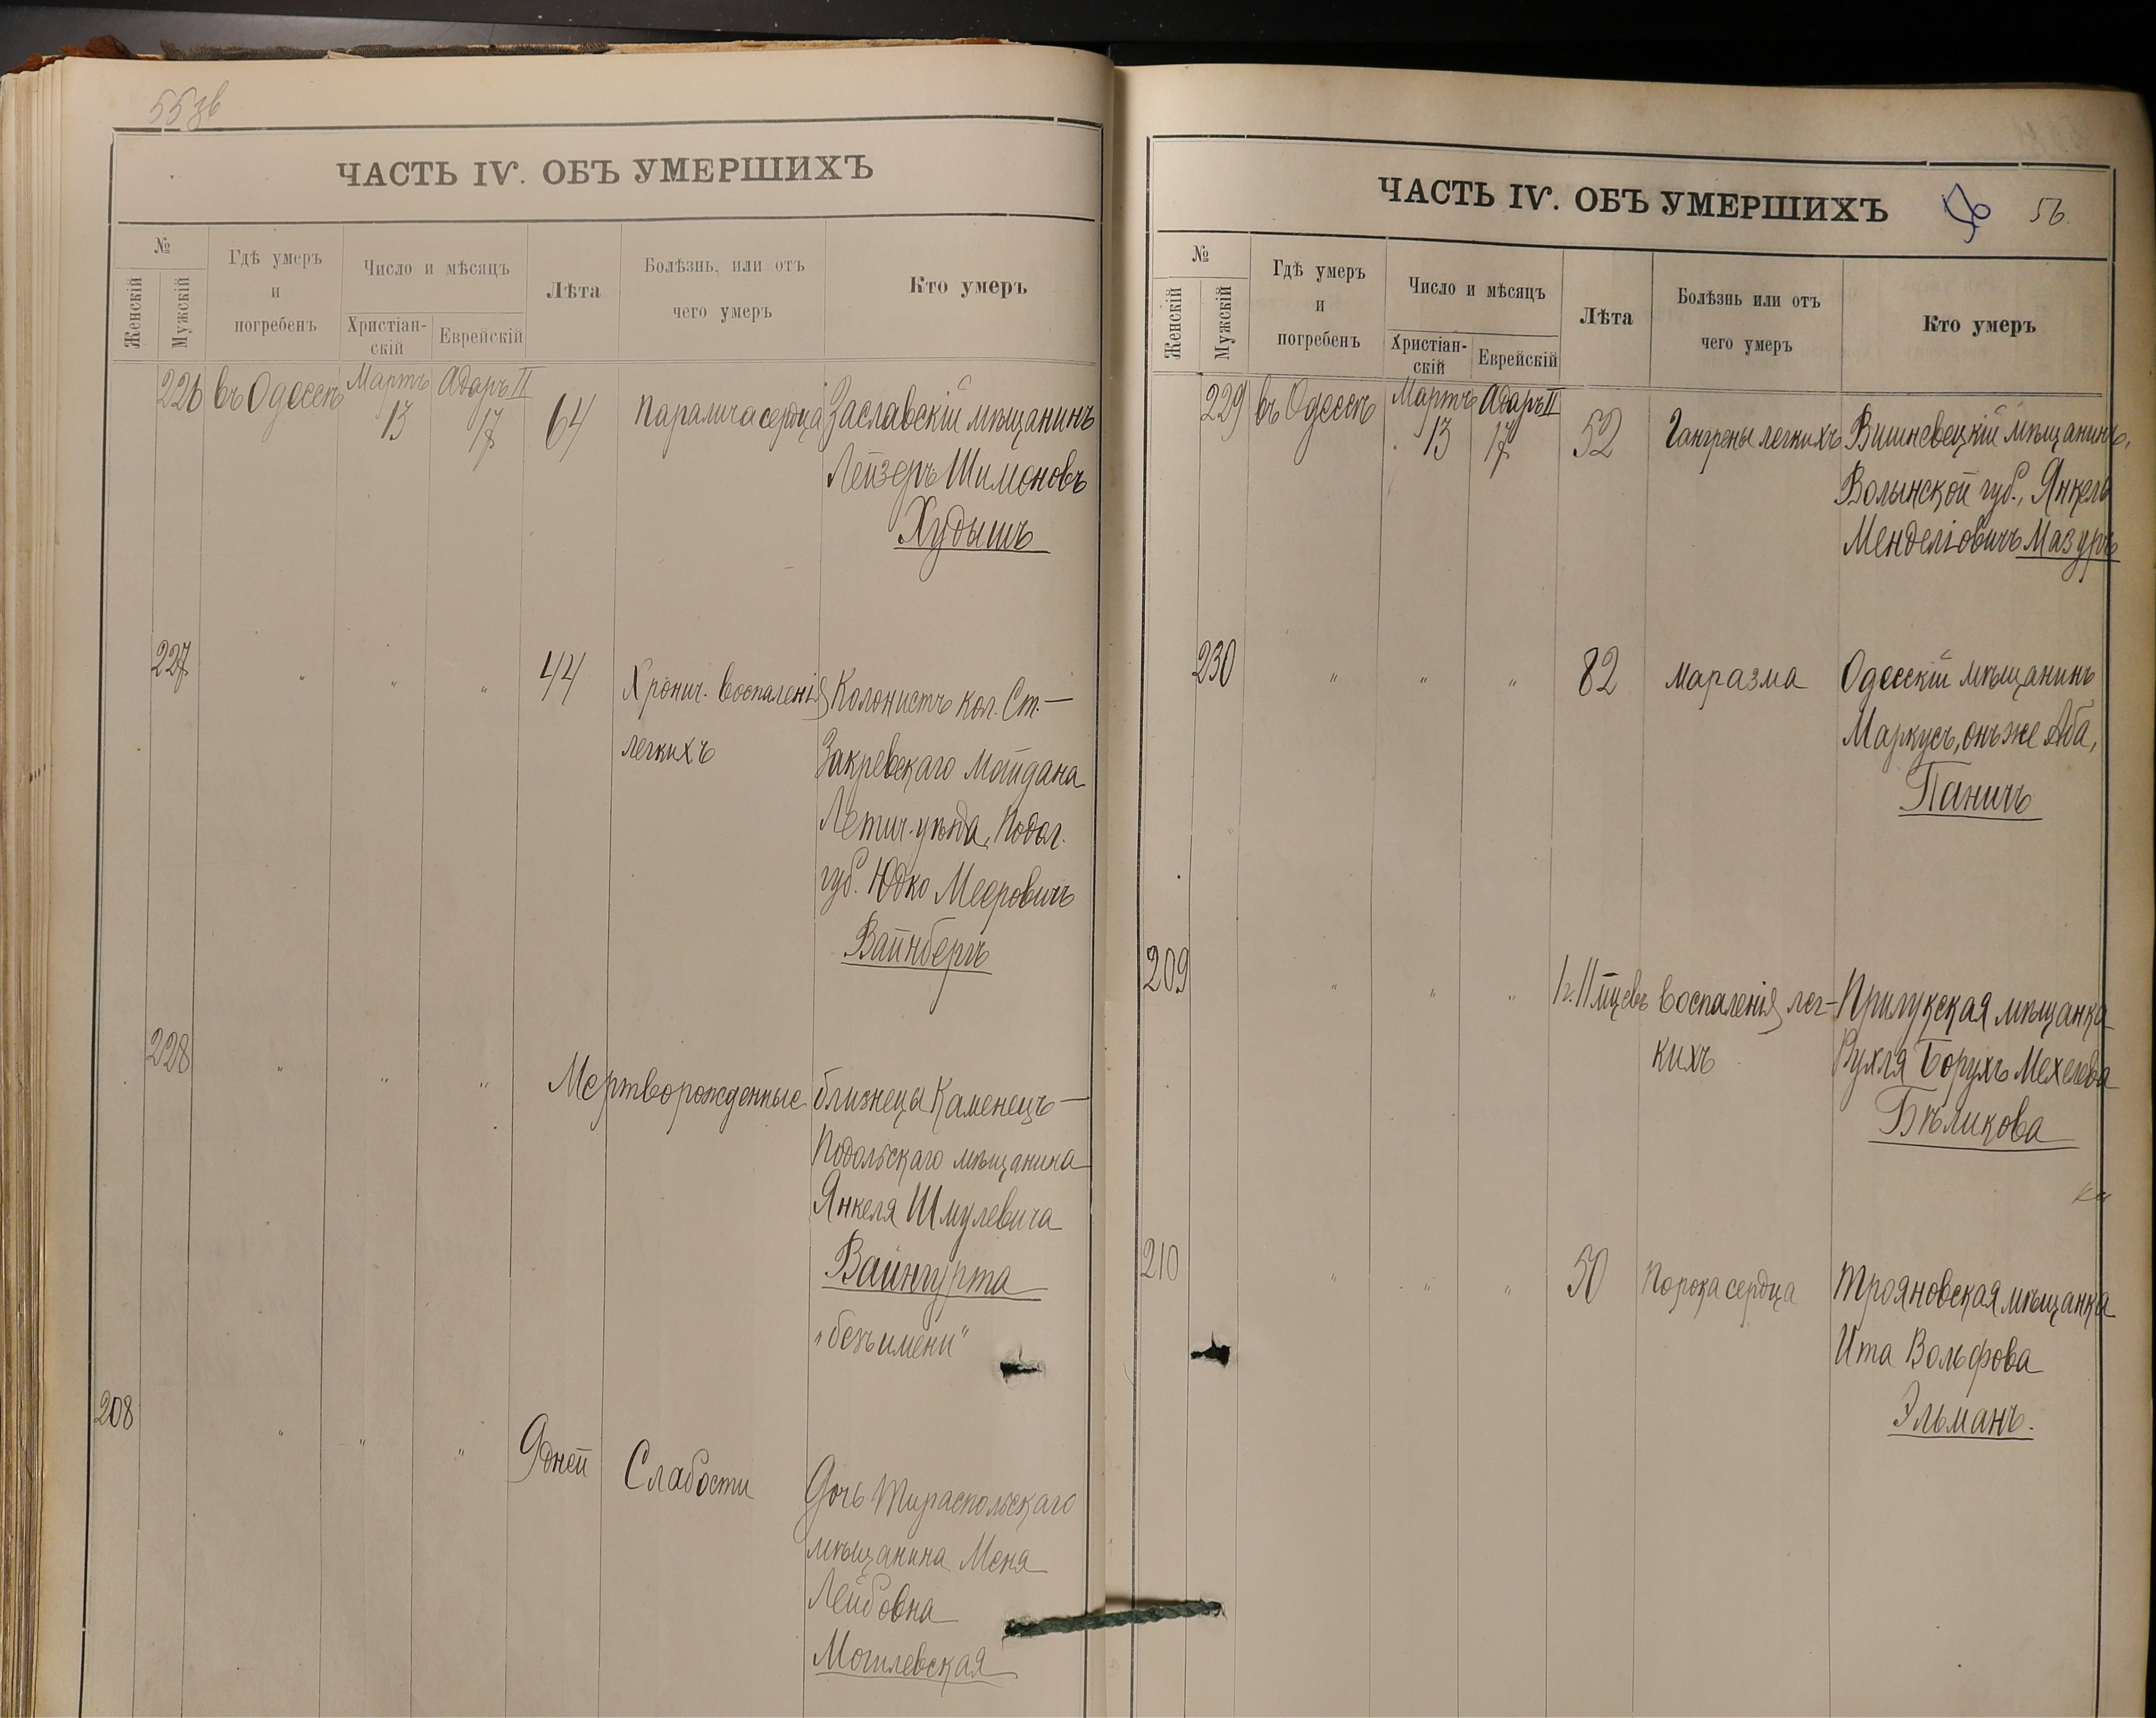 55зв
ЧАСТЬ IV. ОБЪ УМЕРШИХЪ
№
Женскій
Мужскій
Гдѣ умеръ
и
погребенъ
Число и мѣсяцъ
Христіан-
скій
Еврейскій
Лѣта
Болѣзнь, или отъ
чего умеръ
Кто умеръ
226 въ Одессѣ Мартъ 13 Адаръ II 17 64 Паралича сердца Заславскій мѣщанинъ
Лейзеръ Шимоновъ
Худышъ
227 " " " 44 Хронич. воспаленія Колонистъ кол. Ст.-
легкихъ Закревскаго Майдана
Летич. уѣзда, Подол.
губ. Юдко Мееровичъ
Вайнбергъ
228 " " " Мертворожденные близнецы Каменецъ-
Подольскаго мѣщанина
Янкеля Шмулевича
Вайнгурта
"безъ имени"
208 " " " 9 дней Слабости Дочь Тираспольскаго
мѣщанина Меня
Лейбовна
Могилевская
ЧАСТЬ IV. ОБЪ УМЕРШИХЪ 56 56.
№
Женскій
Мужскій
Гдѣ умеръ
и
погребенъ
Число и мѣсяцъ
Христіан-
скій
Еврейскій
Лѣта
Болѣзнь или отъ
чего умеръ
Кто умеръ
229 въ Одессѣ Мартъ 13 Адаръ II 17 52 Гангрены легкихъ Вишневецкій мѣщанинъ,
Волынской губ., Янкель
Менделіовичъ Мазуръ
230 " " " 82 Маразма Одесскій мѣщанинъ
Маркусъ, онъ же Аба,
Паничъ
209 " " " 1 г. 11 мцевъ Воспаленія лег- Прилукская мѣщанка
кихъ Рухля Борухъ Мехелева
Бѣликова
210 " " " 50 Порока сердца Трояновская мѣщанка
Ита Вольфова
Эльманъ.